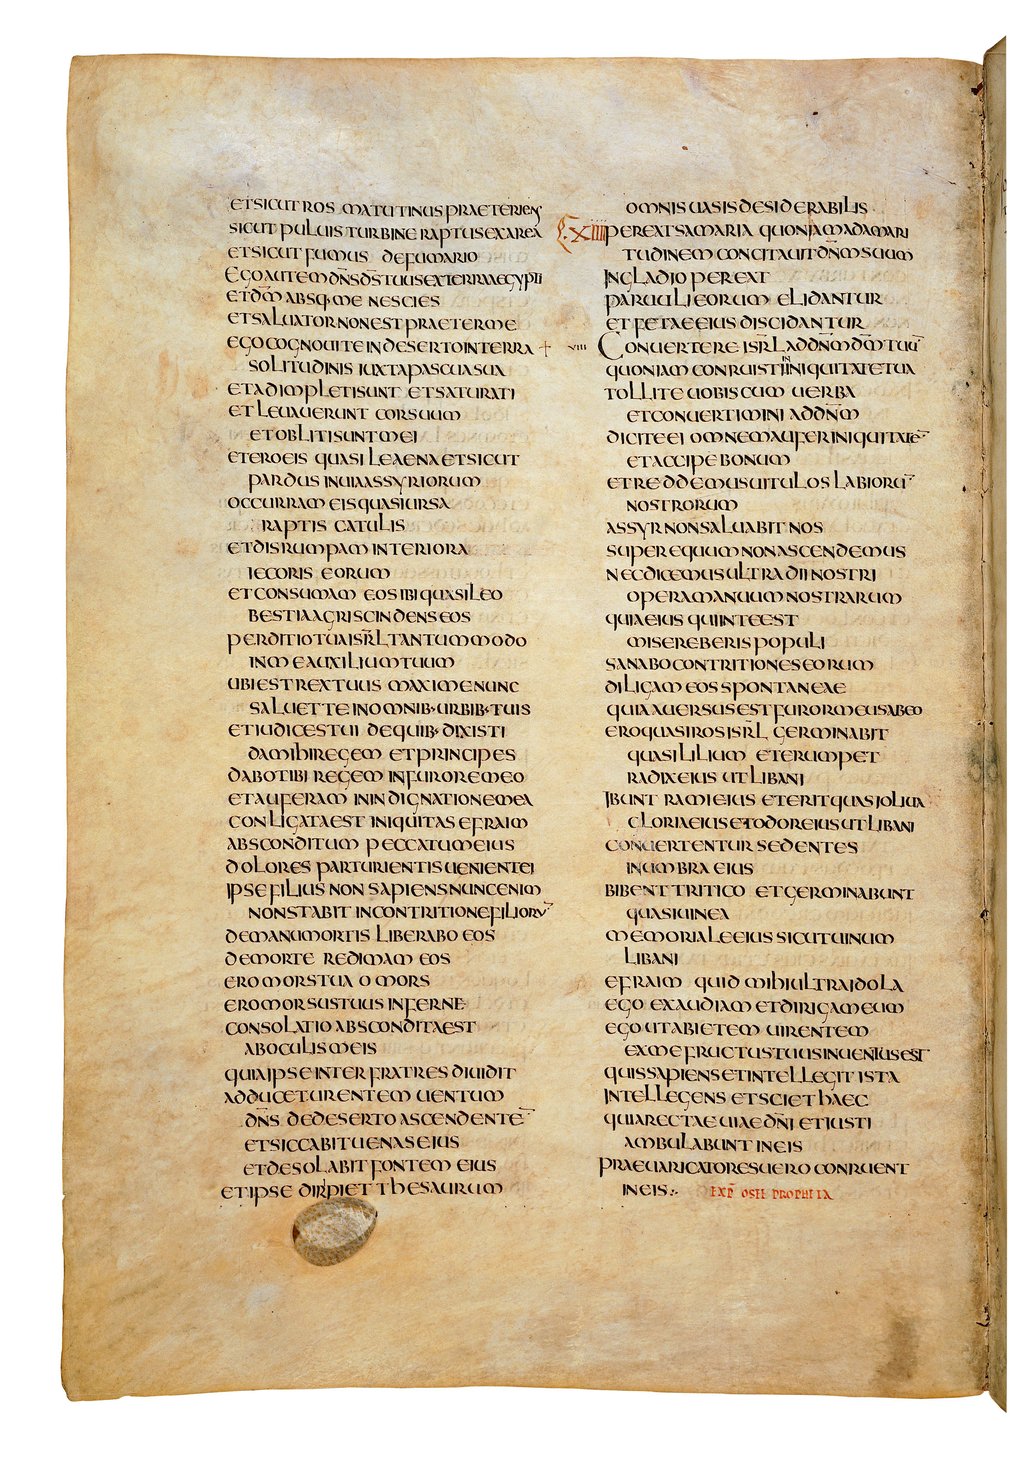 ET SICUT ROS MATUTINUS PRAETERIENS
SICUT PULUIS TURBINE RAPTUS EX AREA
ET SICUT FUMUS DE FUMARIO
EGO AUTEM DNS DS TUUS EX TERRA AEGYPTI
ET DM ABSQ· ME NESCIES
ET SALUATOR NON EST PRAETER ME
EGO COGNOUI TE IN DESERTO IN TERRA
SOLITUDINIS IUXTA PASCUA SUA
ET ADIMPLETI SUNT ET SATURATI
ET LEUAUERUNT COR SUUM
ET OBLITI SUNT MEI
ET ERO EIS QUASI LEAENA ET SICUT
PARDUS IN UIA ASSYRIORUM
OCCURRAM EIS QUASI URSA
RAPTIS CATULIS
ET DISRUMPAM INTERIORA
IECORIS EORUM
ET CONSUMAM EOS IBI QUASI LEO
BESTIA AGRI SCINDENS EOS
PERDITIO TUA ISRL TANTUMMODO
IN ME AUXILIUM TUUM
UBI EST REX TUUS MAXIME NUNC
SALUET TE IN OMNIB· URBIB· TUIS
ET IUDICES TUI DE QUIB· DIXISTI
DA MIHI REGEM ET PRINCIPES
DABO TIBI REGEM IN FURORE MEO
ET AUFERAM IN INDIGNATIONE MEA
CONLIGATA EST INIQUITAS EFRAIM
ABSCONDITUM PECCATUM EIUS
DOLORES PARTURIENTIS UENIENT EI
IPSE FILIUS NON SAPIENS NUNC ENIM
NON STABIT IN CONTRITIONE FILIORU
DE MANU MORTIS LIBERABO EOS
DE MORTE REDIMAM EOS
ERO MORS TUA O MORS
ERO MORSUS TUUS INFERNE
CONSOLATIO ABSCONDITA EST
AB OCULIS MEIS
QUIA IPSE INTER FRATRES DIUIDIT
ADDUCET URENTEM UENTUM
DNS DE DESERTO ASCENDENTE
ET SICCABIT UENAS EIUS
ET DESOLABIT FONTEM EIUS
ET IPSE DIRIPIET THESAURUM
OMNIS UASIS DESIDERABILIS
XIIII PEREAT SAMARIA QUONIAM AD AMARI
TUDINEM CONCITAUIT DNM SUUM
IN GLADIO PEREAT
PARUULI EORUM ELIDANTUR
ET FETAE EIUS DISCIDANTUR
UIII CONUERTERE ISRL AD DNM DM TUU
QUONIAM CONRUISTI IN INIQUITATE TUA
TOLLITE UOBISCUM UERBA
ET CONUERTIMINI AD DNM
DICITE EI OMNEM AUFER INIQUITATE
ET ACCIPE BONUM
ET REDDEMUS UITULOS LABIORU
NOSTRORUM
ASSYR NON SALUABIT NOS
SUPER EQUUM NON ASCENDEMUS
NEC DICEMUS ULTRA DII NOSTRI
OPERA MANUUM NOSTRARUM
QUIA EIUS QUI IN TE EST
MISEREBERIS POPULI
SANABO CONTRITIONES EORUM
DILIGAM EOS SPONTANEAE
QUIA AUERSUS EST FUROR MEUS AB EO
ERO QUASI ROS ISRL GERMINABIT
QUASI LILIUM ET ERUMPET
RADIX EIUS UT LIBANI
IBUNT RAMI EIUS ET ERIT QUASI OLIUA
GLORIA EIUS ET ODOR EIUS UT LIBANI
CONUERTENTUR SEDENTES
IN UMBRA EIUS
BIBENT TRITICO ET GERMINABUNT
QUASI UINEA
MEMORIALE EIUS SICUT UINUM
LIBANI
EFRAIM QUID MIHI ULTRA IDOLA
EGO EXAUDIAM ET DIRIGAM EUM
EGO UT ABIETEM UIRENTEM
EX ME FRUCTUS TUUS INUENTUS EST
QUIS SAPIENS ET INTELLEGIT ISTA
INTELLEGENS ET SCIET HAEC
QUIA RECTAE UIAE DNI ET IUSTI
AMBULABUNT IN EIS
PRAEUARICATORES UERO CONRUENT
IN EIS EXP OSEE PROPHETA